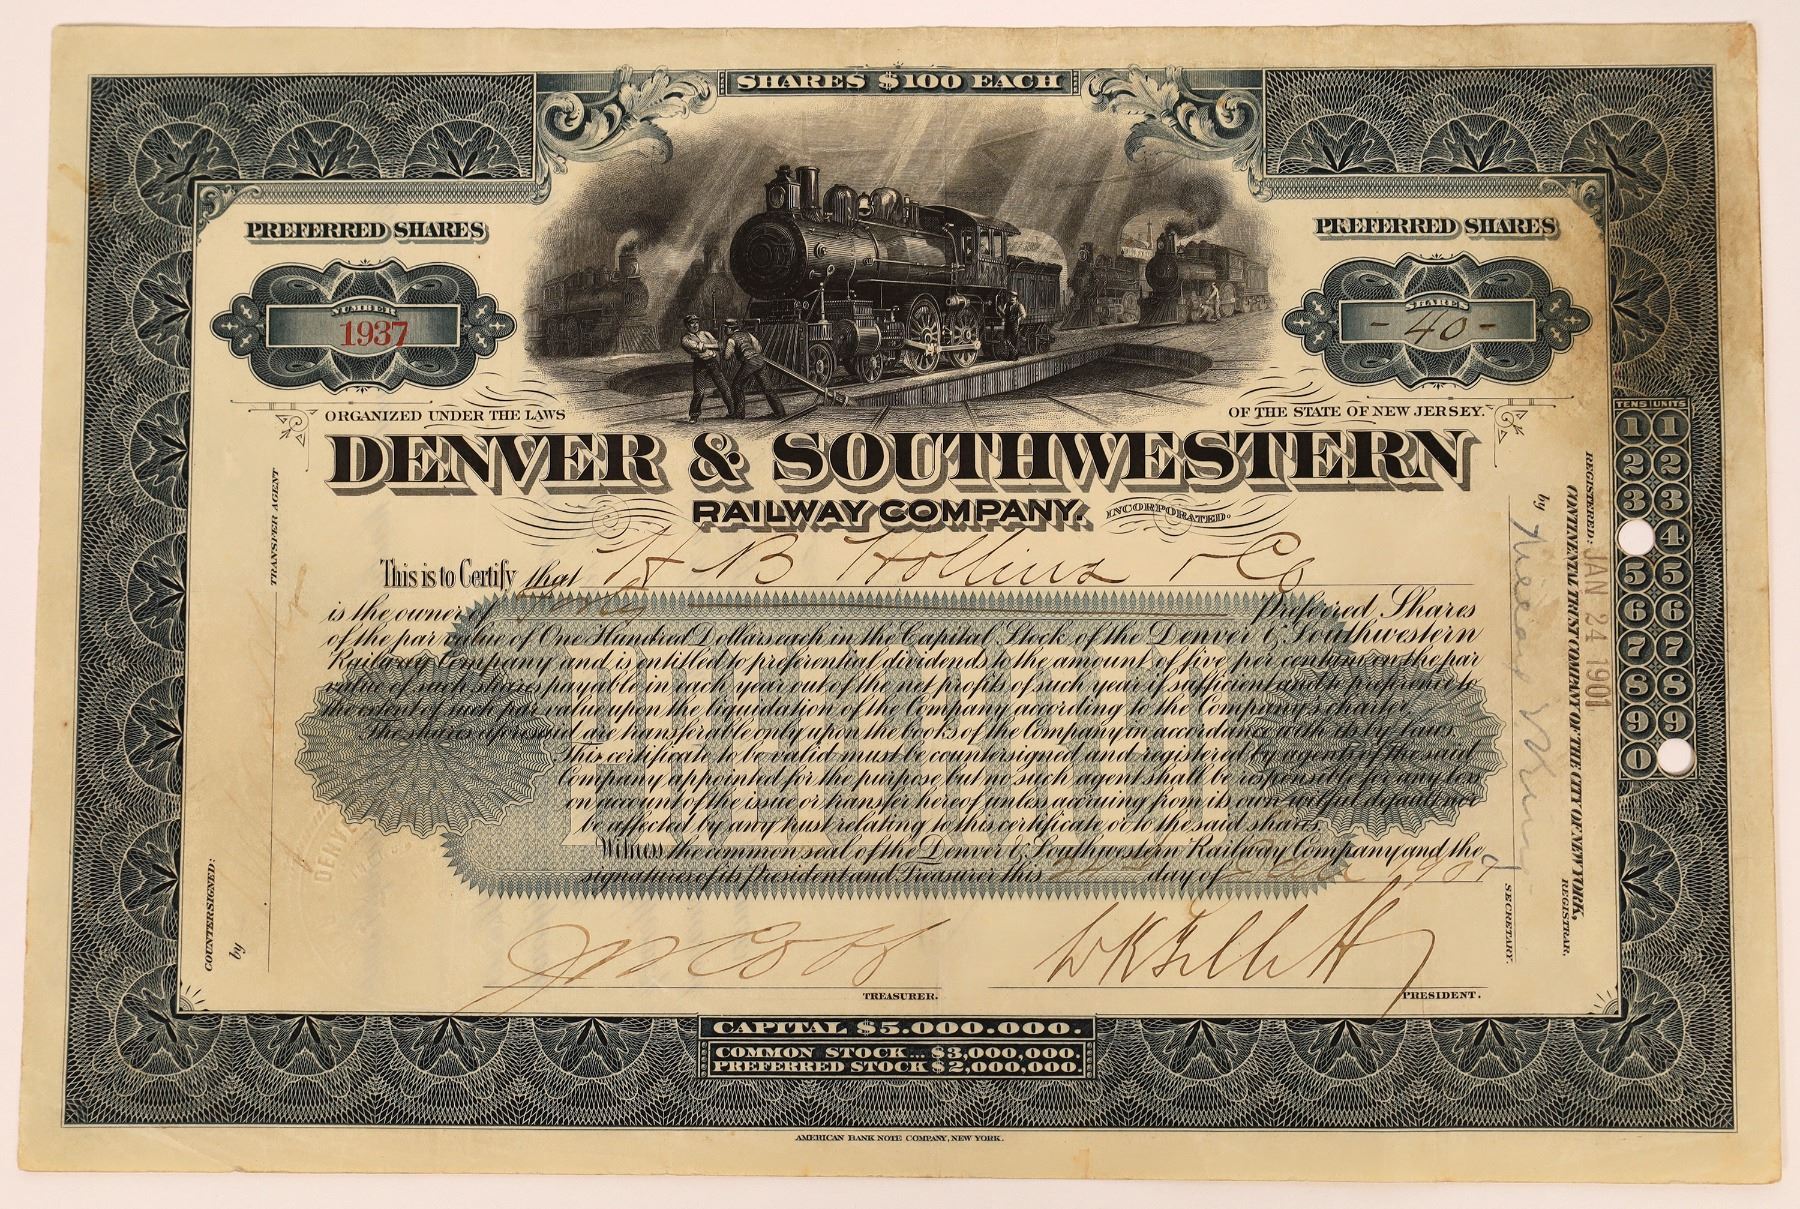 SHARES $100 EACH
PREFERRED SHARES
PREFERRED SHARES
NUMBER
1937
SHARES
- 40 -
ORGANIZED UNDER THE LAWS
OF THE STATE OF NEW JERSEY.
DENVER & SOUTHWESTERN
RAILWAY COMPANY.
INCORPORATED.
This is to Certify that H B Hollins & Co
is the owner of forty Preferred Shares
of the par value of One Hundred Dollars each in the Capital Stock of the Denver & Southwestern
Railway Company and is entitled to preferential dividends to the amount of five per centum on the par
value of such shares payable in each year out of the net profits of such year if sufficient and to preference to
the extent of such par value upon the liquidation of the Company according to the Company's charter.
The shares aforesaid are transferable only upon the books of the Company in accordance with its by-laws.
This certificate to be valid must be countersigned and registered by agents of the said
Company appointed for the purpose but no such agent shall be responsible for any loss
on account of the issue or transfer hereof unless accruing from its own wilful default nor
be affected by any trust relating to this certificate or to the said shares.
Witness the common seal of the Denver & Southwestern Railway Company and the
signatures of its President and Treasurer this day of
TREASURER.
PRESIDENT.
TRANSFER AGENT
COUNTERSIGNED:
by
DENVER
SECRETARY.
by
REGISTERED: JAN 24 1901
CONTINENTAL TRUST COMPANY OF THE CITY OF NEW YORK,
REGISTRAR.
TENS UNITS
1 1
2 2
3 3
4
5 5
6 6
7 7
8 8
9 9
0
CAPITAL $5.000.000.
COMMON STOCK... $3,000,000.
PREFERRED STOCK $2,000,000.
AMERICAN BANK NOTE COMPANY, NEW YORK.